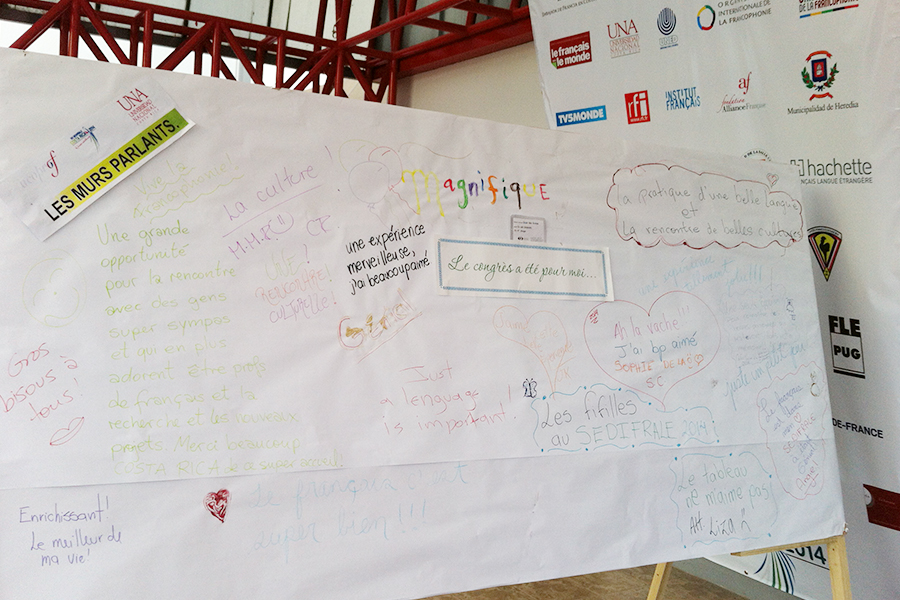 ORGANISATION
INTERNATIONALE DE
la francophonie
le français
dans le monde
UNA
UNIVERSIDAD
NACIONAL
TV5MONDE
rfi
INSTITUT
FRANÇAIS
af
fondation
Alliance Française
Municipalidad de Heredia
hachette
FRANÇAIS LANGUE ÉTRANGÈRE
FLE
PUG
DE-FRANCE
2014
af
UNA
UNIVERSIDAD
NACIONAL
LES MURS PARLANTS.
magnifiquE
La culture!
M.H.R
CR
VIVE
RENCONTRE
CULTURELLE!
une expérience
merveilleuse,
j'ai beaucoup aimé
Le congrès a été pour moi...
La pratique d'une belle langue
et
La rencontre de belles cultures
Une grande
opportunité
pour la rencontre
avec des gens
super sympas
et qui en plus
adorent être profs
de français et la
recherche et les nouveaux
projets. Merci beaucoup
COSTA RICA de ce super accueil!
Gros
bisous à
tous!
Just
a language
is important!
Ah la vache !!!
J'ai bp aimé
SOPHIE
SC
Les fifilles
au SEDIFRALE 2014
juste un petit peu
Le tableau
ne m'aime pas
AH LIZA
Enrichissant!
Le meilleur de
ma vie!
Le français c'est
super bien!!!